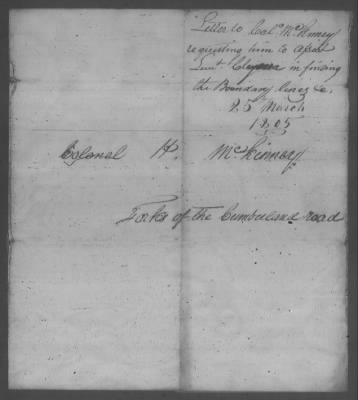 Letter to Col. McKinney
requesting him to assist
Lieut. in finding
the Boundary lines &c.
25 March
1805
Colonel H. McKinney
Forks of the Cumberland road